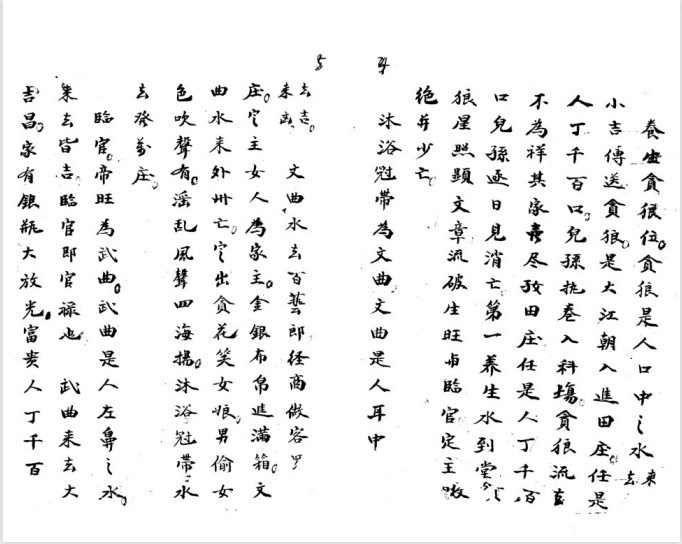 養生貪狼位。貪狼是人口中之水 来去
小吉傳送貪狼。是大江朝入進田庄。任是
人丁千百口。兒孫抱卷入科場。貪狼流
不為祥其家喪尽孜田庄任是人丁千百
口兒孫逐日見消亡第一養生水到堂
狼星照顯文章流破生旺臨官定主
絶弃少亡。
沐浴冠帶為文曲文曲是人耳中
去吉来凶 文曲水去百藝郎径商做客
庄。定主女人為家主。金銀布帛進滿箱。文
曲水来外卅亡。定出貪花笑女娘。男偷女
色吹聲有。淫乱風聲四海揚。沐浴冠帶水
去発萬庄。
臨官。帝旺為武曲。武曲是人左鼻之水。
来去皆吉。臨官郎官禄也 武曲来去大
吉昌。家有銀瓶大放光。富贵人丁千百
4
5